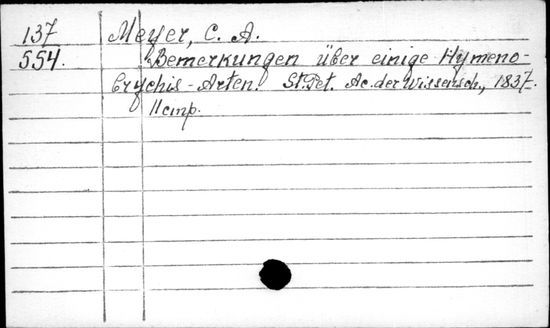 137 Meyer, C. A.
554. Bemerkungen über einige Hymeno-
brychis-Arten. St. Pet. Ac. der Wissensch., 1837.
11 cmp.